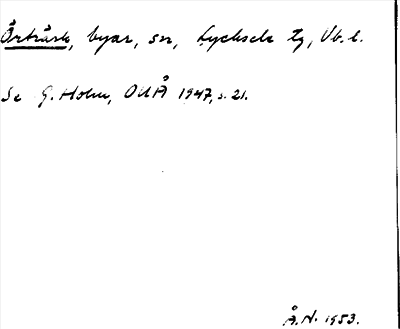 Örträsk, byar, sn, Lycksele tg, Vb. l.
Se G. Holm, OUÅ 1947, s. 21.
Å.N. 1953.